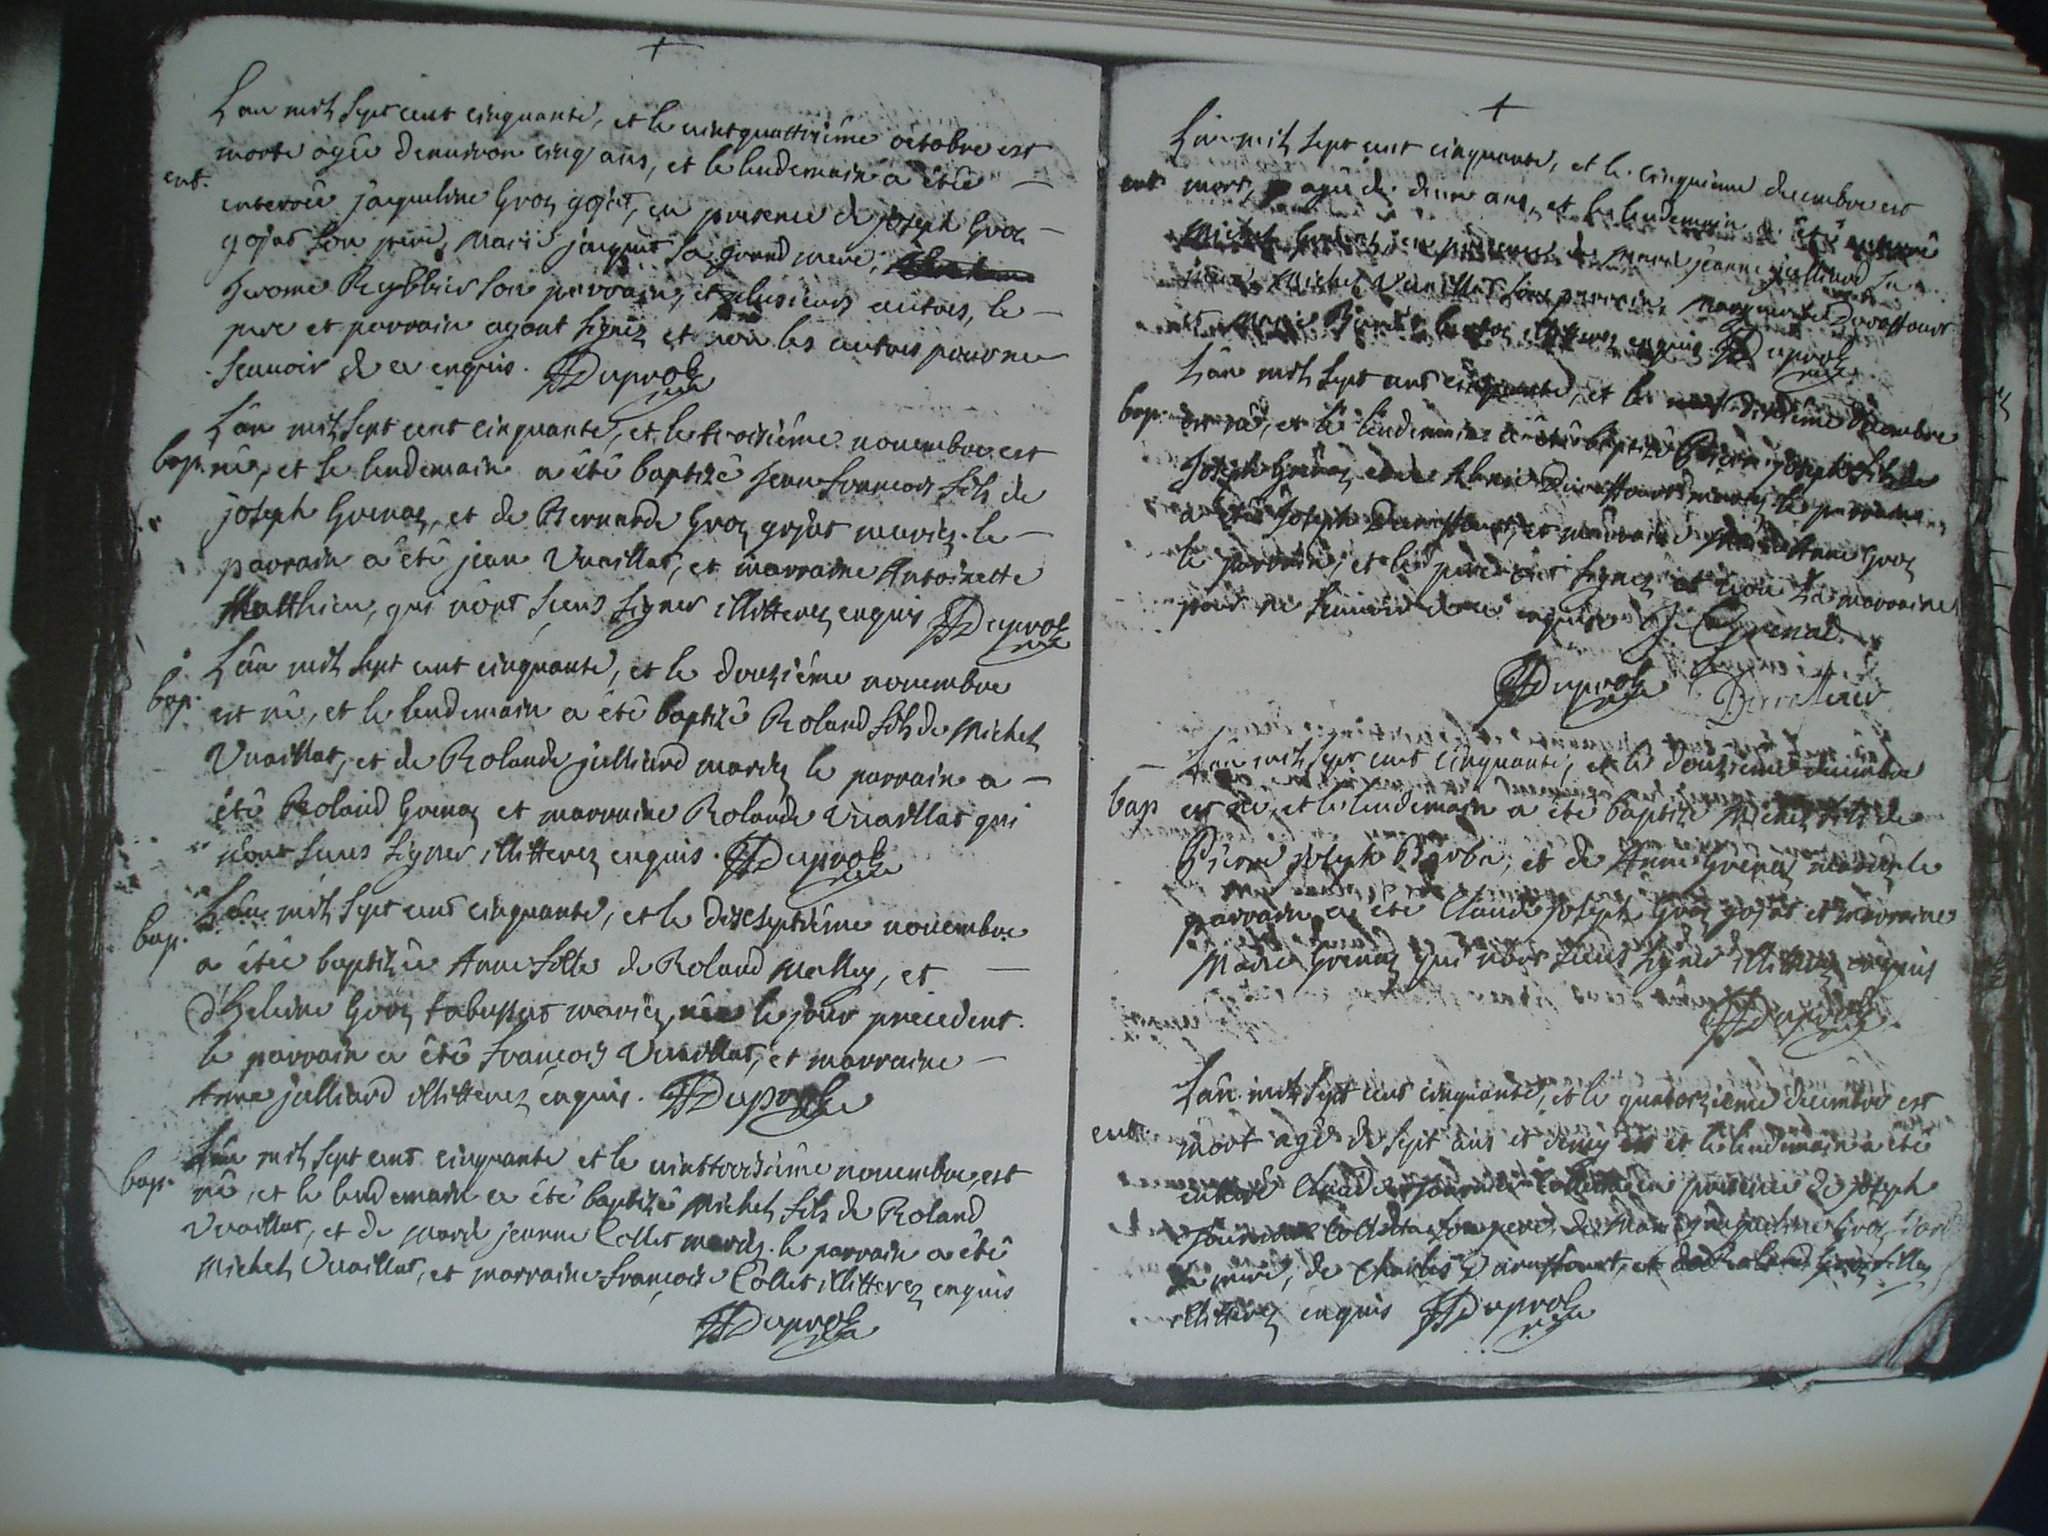 L'an mil sept cent cinquante, et le vintquattrième octobre est
morte agée d'environ cinq ans, et le lendemain a étée
ent.
enterrée jaqueline Groz gojat, en presence de joseph Groz
gojat son pere, Marie jaquet sa grand mere,
Jerome son parrain, et plusieurs autres, le
pere et parrain ayant signéz et non les autres pour ne
scavoir de ce enquis. Duproz
L'an mil sept cent cinquante, et le troisième novembre est
bap. né, et le lendemain a été baptizé Jean francois fils de
joseph Grenaz, et de Bernarde Groz gojat mariéz. le
parrain a été jean Vuaillat, et marraine Antoinette
Matthieu, qui n'ont sceus signer illitterez enquis Duproz
L'an mil sept cent cinquante, et le douzième novembre
bap.
est né, et le lendemain a été baptizé Roland fils de Michel
Vuaillat, et de Rolande julliard mariéz le parrain a
été Roland Grenaz et marraine Rolande Vuaillat qui
n'ont sceus signer illitterez enquis. Duproz
L'an mil sept cent cinquante, et le dixseptième novembre
bap.
a étée baptizée Anne fille de Roland Malley, et
d'Heleine Groz tabussat mariéz, née le jour precedent.
le parrain a été francois Vuaillat, et marraine
Anne julliard illitterez enquis. Duproz
L'an mil sept cent cinquante et le vinttroisième novembre, est
bap.
né, et le lendemain a été baptizé Michel fils de Roland
Vuaillat, et de Marie jeanne Collet mariéz. le parrain a été
Michel Vuaillat, et marraine francoise Collet illitterez enquis
Duproz
L'an mil sept cent cinquante, et le cinquième decembre est
ent. mort, agé de ans, et le lendemain a été enterré
Michel en presence de jeanne julliard sa
Michel Vuaillat son parrain,
et Marie illitterez enquis. Duproz
L'an mil sept cent cinquante, et le dixième decembre
bap. est né, et le lendemain a été baptizé Pierre joseph fils de
Joseph Grenaz, et de Marie mariéz le parrain
a été Joseph et marraine Anne Groz
le parrain, et le pere ont signéz et non la marraine
pour ne scavoir de ce enquise J. Grenat
Duproz
L'an mil sept cent cinquante, et le douzième decembre
bap est né, et le lendemain a été baptizé Michel fils de
Pierre joseph Barbe, et de Anne Grenaz mariéz le
parrain a été Claude joseph Groz gojat et marraine
Marie Grenaz qui n'ont sceus signer illitterez enquis
Duproz
L'an mil sept cent cinquante, et le quatorzième decembre est
ent.
mort agé de sept ans et demy et le lendemain a été
enterré Claude en presence de joseph
son pere, de Marie jaqueline Groz
sa mere, de Charles et de Roland Groz
illitterez enquis Duproz